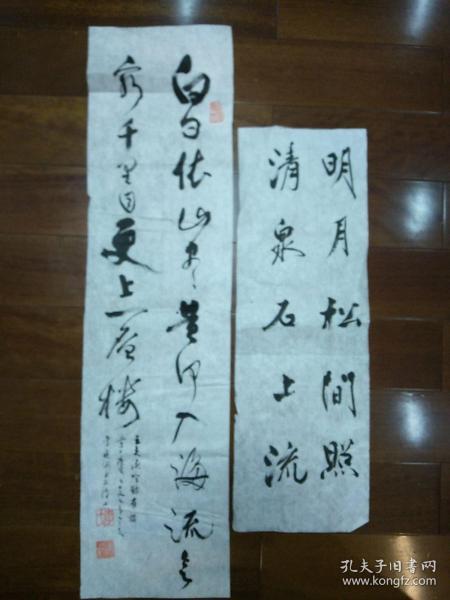 白日依山尽黄河入海流欲
穷千里目更上一层楼
明月松间照
清泉石上流
孔夫子旧书网
www.kongfz.com